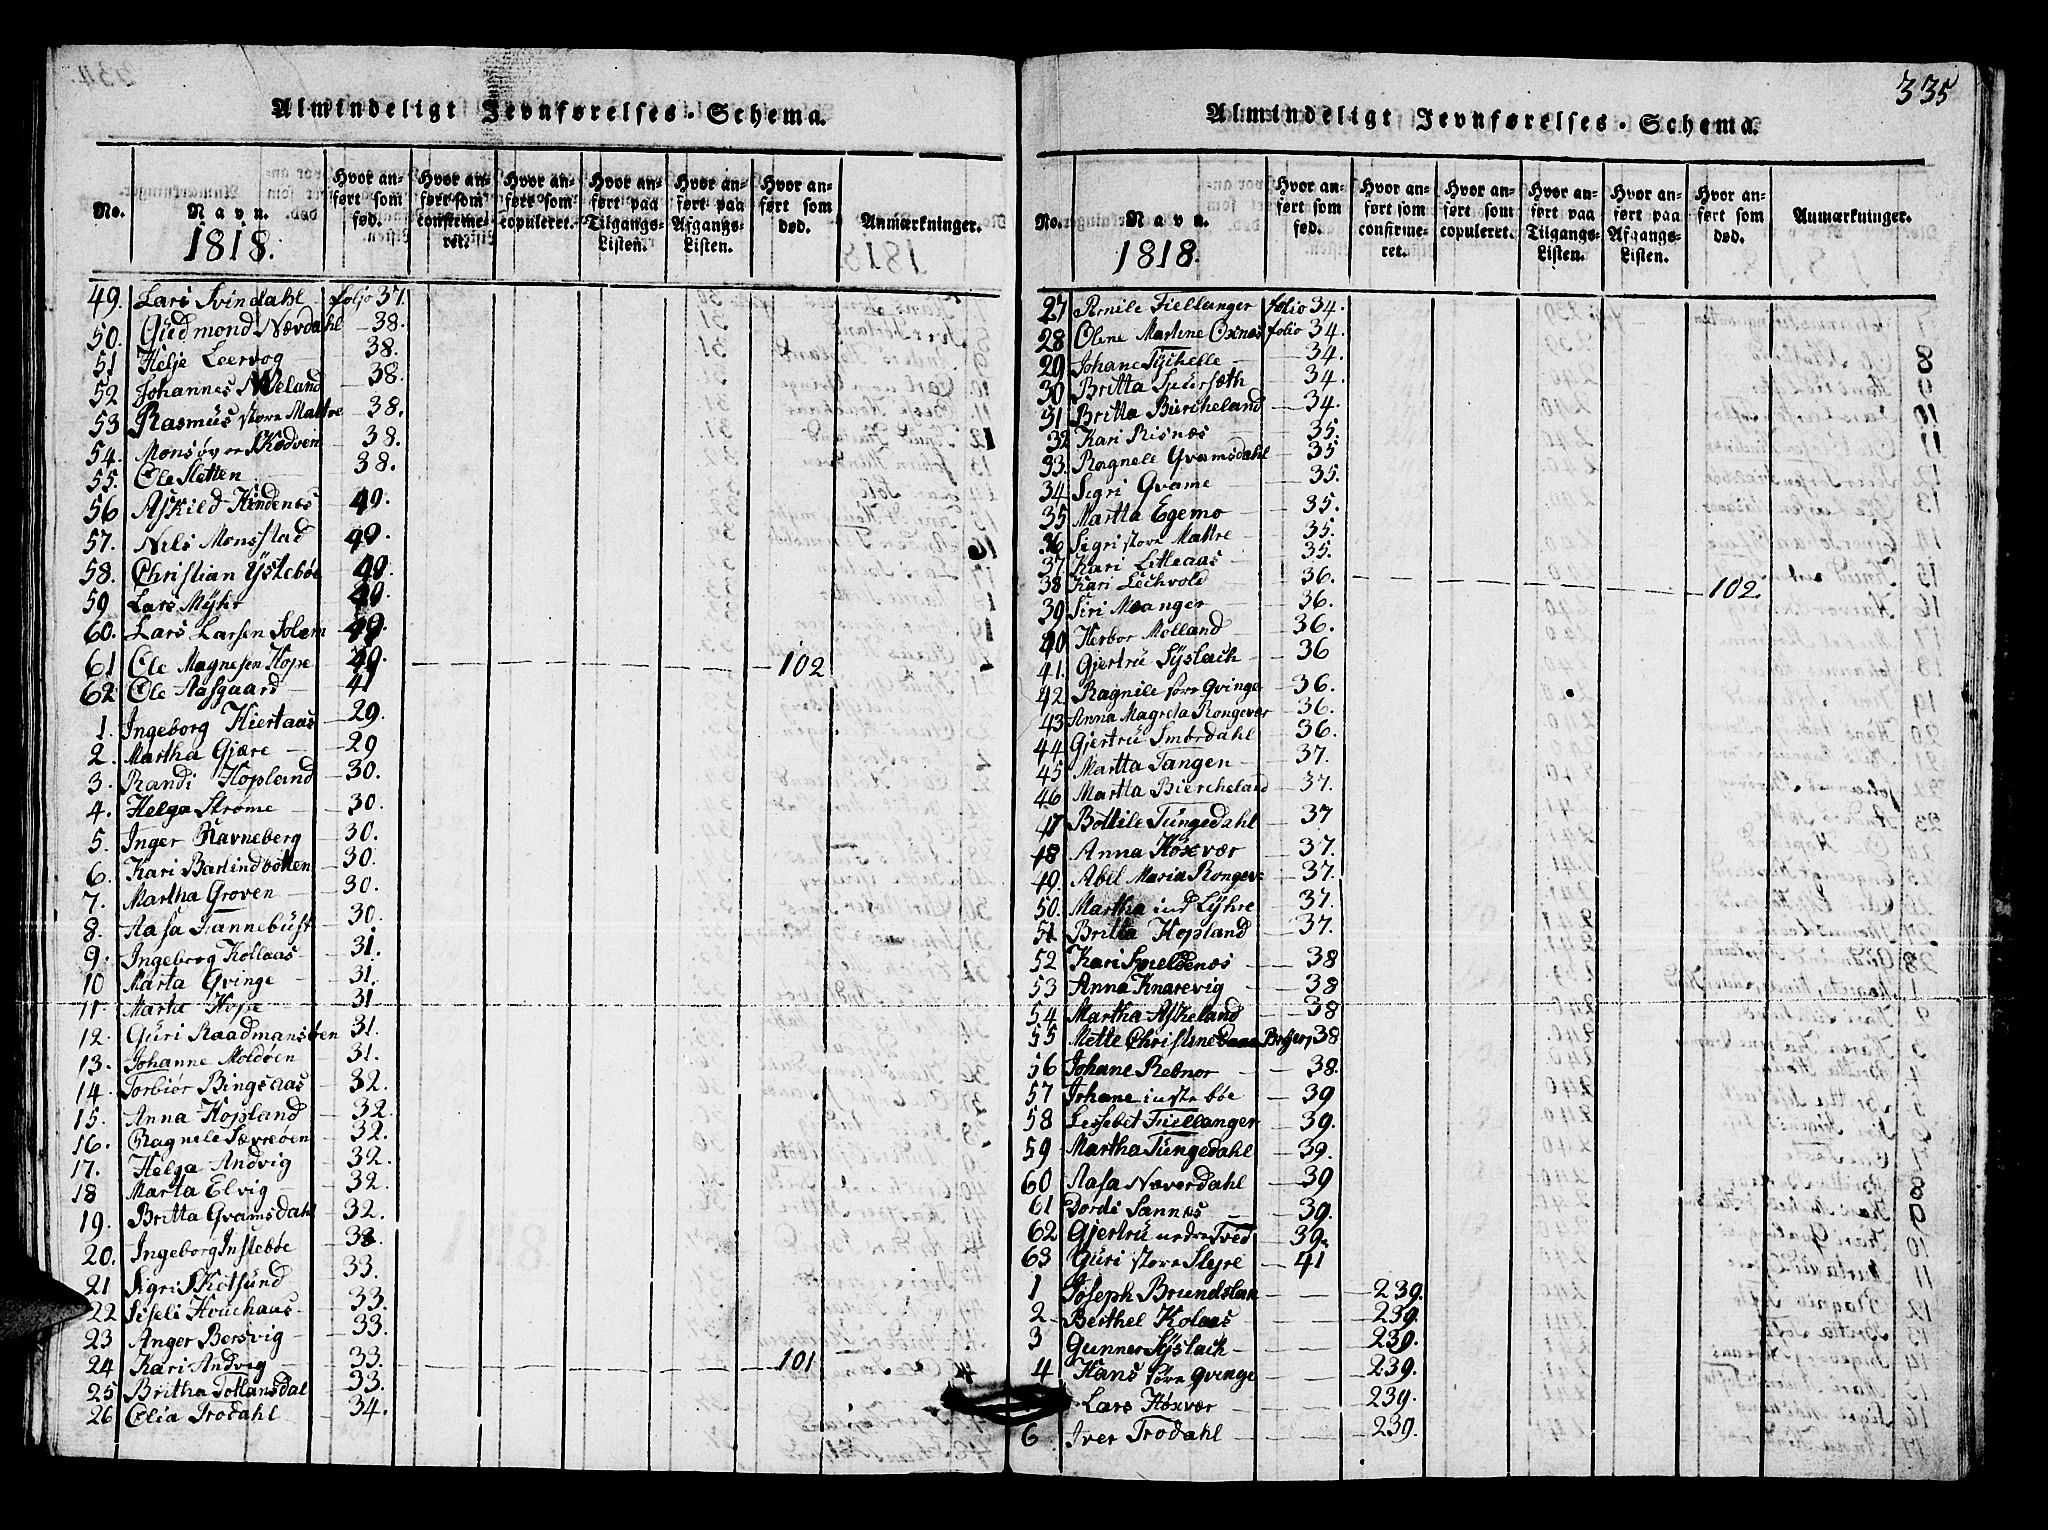 Almindeligt Jevnførelses-Schema.
No. Navn. 1818. Hvor anført som fød. Hvor anført som confirmeret. Hvor anført som copuleret. Hvor anført paa Tilgangs-Listen. Hvor anført paa Afgangs-Listen. Hvor anført som død. Anmærkninger.
49. Lars Svindahl folio 37.
50. Gudmond Nævdahl 38.
51 Helje Leervog 38.
52 Johannes Nleland 38.
53 Rasmus store Mattre 38.
54. Mons øvre Kodvin 38.
55. Ole Sletten 38.
56 Askild Hindenes 40.
57. Nils Monsstad 40.
58. Christian Ystebøe 40.
59 Lars Myhr 40.
60. Lars Larsen Solem 40.
61 Ole Magnesen Hope 40. 102
62 Ole Aasgaard 41
1. Ingeborg Hiertaas 29.
2. Martha Gjære 29
3. Randi Hopland 30.
4. Helga Strøme 30.
5. Inger Ravneberg 30.
6. Kari Barlindbotten 30.
7. Martha Groven 30.
8. Aasa Fannebust 30.
9. Ingeborg Kollaas 31.
10 Marta Qvinge 31.
11. Marta Hope 31
12. Guri Raadmansøen 31.
13. Johanne Moldøen 31.
14. Torbiør Bingsaas 32.
15. Anna Hopland 32.
16. Ragnele Sævreøen 32.
17. Helga Andvig 32.
18 Marta Elvig 32.
19. Britta Qvamsdahl 32.
20. Ingeborg Instebøe 33.
21 Sigri Kolsund 33.
22 Siseli Hvuchaas 33.
23 Anger Bersvig 33.
24 Kari Andvig 33. 101
25 Britha Totlansdal 33.
26 Oelia Trodahl 34.
335
Almindeligt Jevnførelses-Schema.
No. Navn. 1818. Hvor anført som fød. Hvor anført som confirmeret. Hvor anført som copuleret. Hvor anført paa Tilgangs-Listen. Hvor anført paa Afgangs-Listen. Hvor anført som død. Anmærkninger.
27 Pernile Fiellanger folio 34.
28 Olene Martine Oxnes folio 34.
29 Johane Sychelle 34.
30 Britta Spursæth 34.
31 Britta Bircheland 34.
32 Kari Risnæs 35.
33. Ragnele Qvamsdahl 35
34 Segri Qvame 35.
35 Martta Egemo 35.
36 Sigri store Mattre 35.
37 Kari Litleaas 35.
38 Kari Lechvold 36. 102.
39 Siri Manger 36.
40 Herbor Molland 36.
41. Gjertru Syslach 36
42 Ragnile søre Qvinge 36.
43 Anna Magreta Rongevær 36.
44 Gjertru Smørdahl 36.
45 Martta Tangen 37.
46 Martta Biercheland 37.
47 Bottile Tungedahl 37
48 Anna Høxvær 37.
49. Abel Maria Rongev: 37.
50. Martha ind Lyhre 37.
51 Britta Hopland 37.
52 Kari Speldenæs 38
53 Anna Knarevig 38
54 Martha Askeland 38
55 Mette Christine Daae Breyer 38
56 Johane Rebnor 38.
57 Johane instebøe 39
58 Lessebet Fiellanger 39.
59 Martha Tungedahl 39.
60 Aasa Næverdahl 39
61 Dordi Sannæs 39.
62 Gjertru nedre Tved 39.
63 Guri store Steyre 41
1 Joseph Brundslan 239.
2 Berthel Kolaas 239.
3 Gunner Syslach 239.
4 Hans søre Qvinge 239.
Lars Høxvær 239.
6 Iver Trodahl 239.